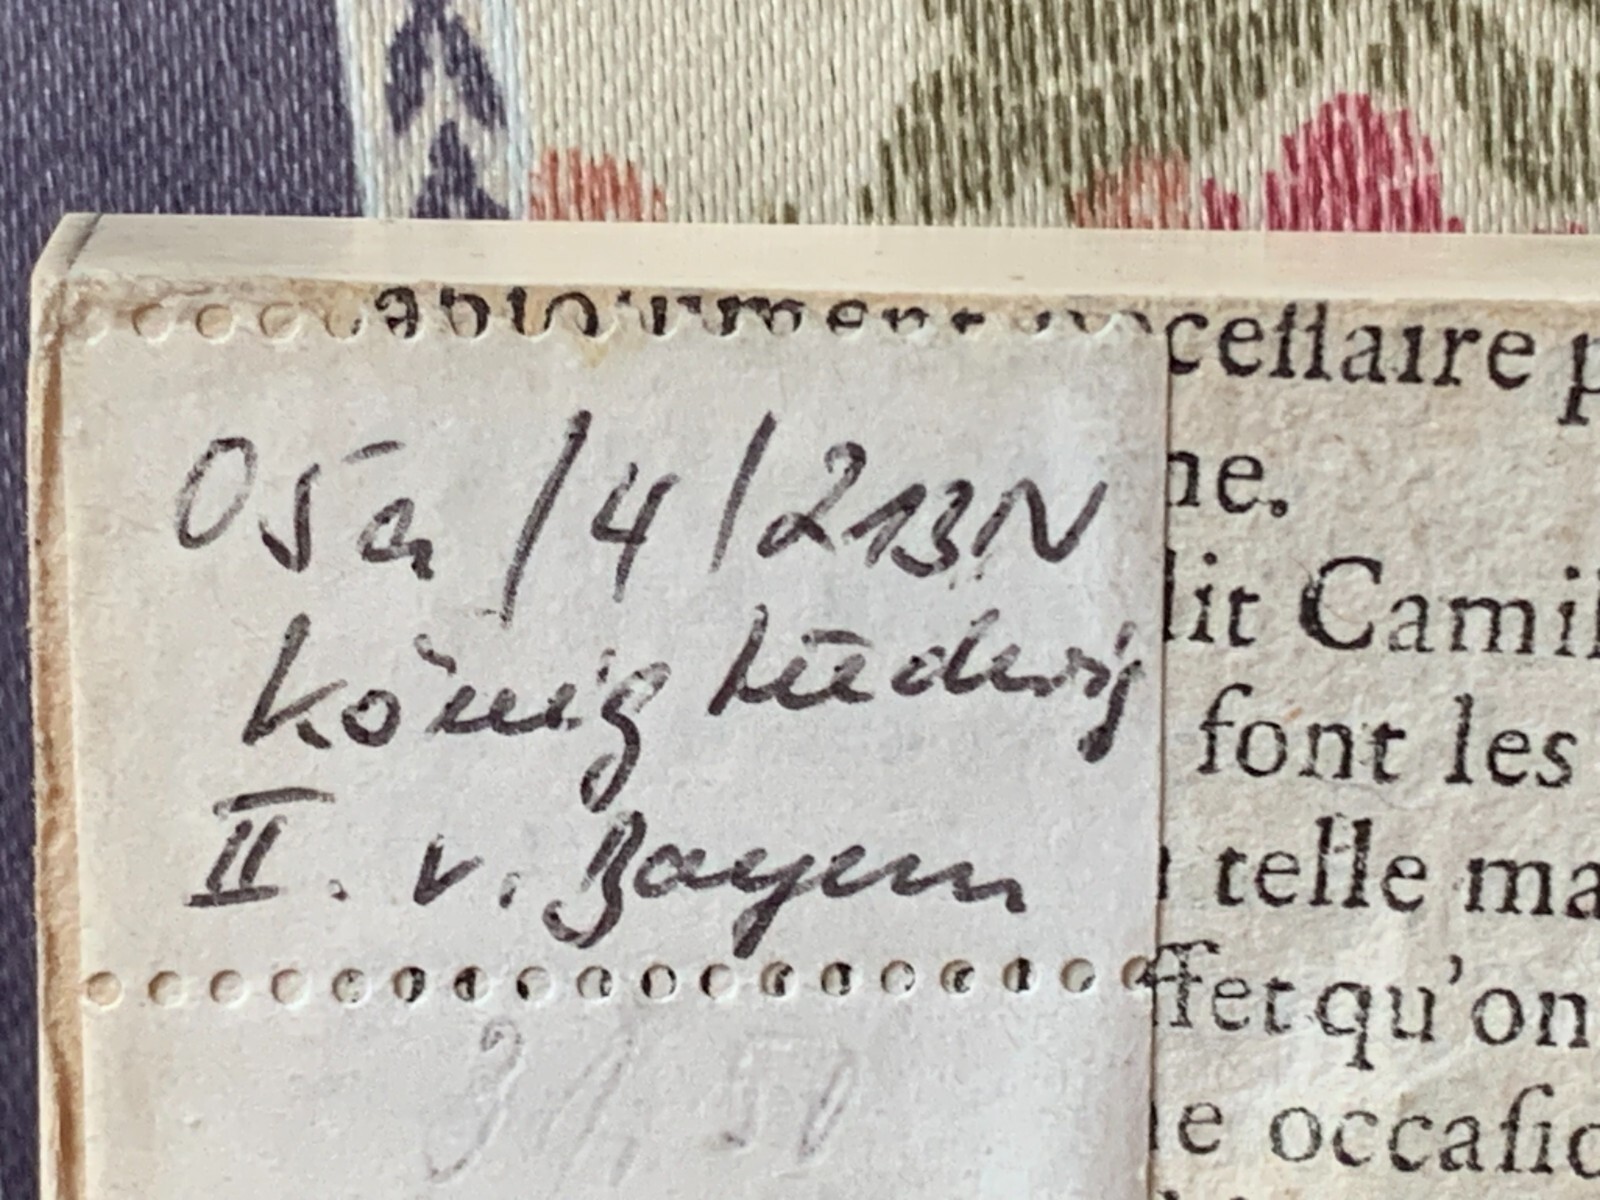 cellaire p
ne.
05a /4/213N
lit Camil
König Ludwig
font les
II. v. Bayern
telle ma
ffet qu'on
e occaſio